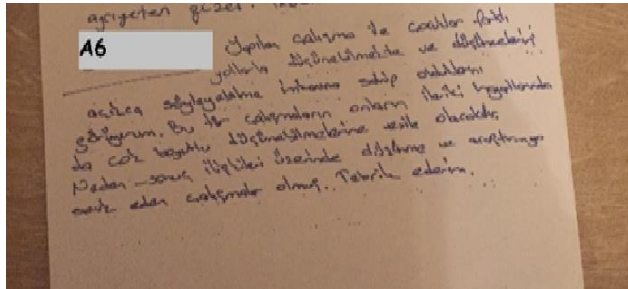 ayrıyeten güzel.
A6
Yapılan çalışma ile çocuklar farklı
yollarla düşünebilmekte ve düşüncelerini
açıkça söyleyebilme imkanına sahip olduklarını
görüyorum. Bu tür çalışmaların onların ileriki hayatlarında
da çok boyutlu düşünebilmelerine vesile olacaktır.
Neden-sonuç ilişkileri üzerinde düşünme ve araştırmaya
sevk eden çalışmalar olmuş. Tebrik ederim.